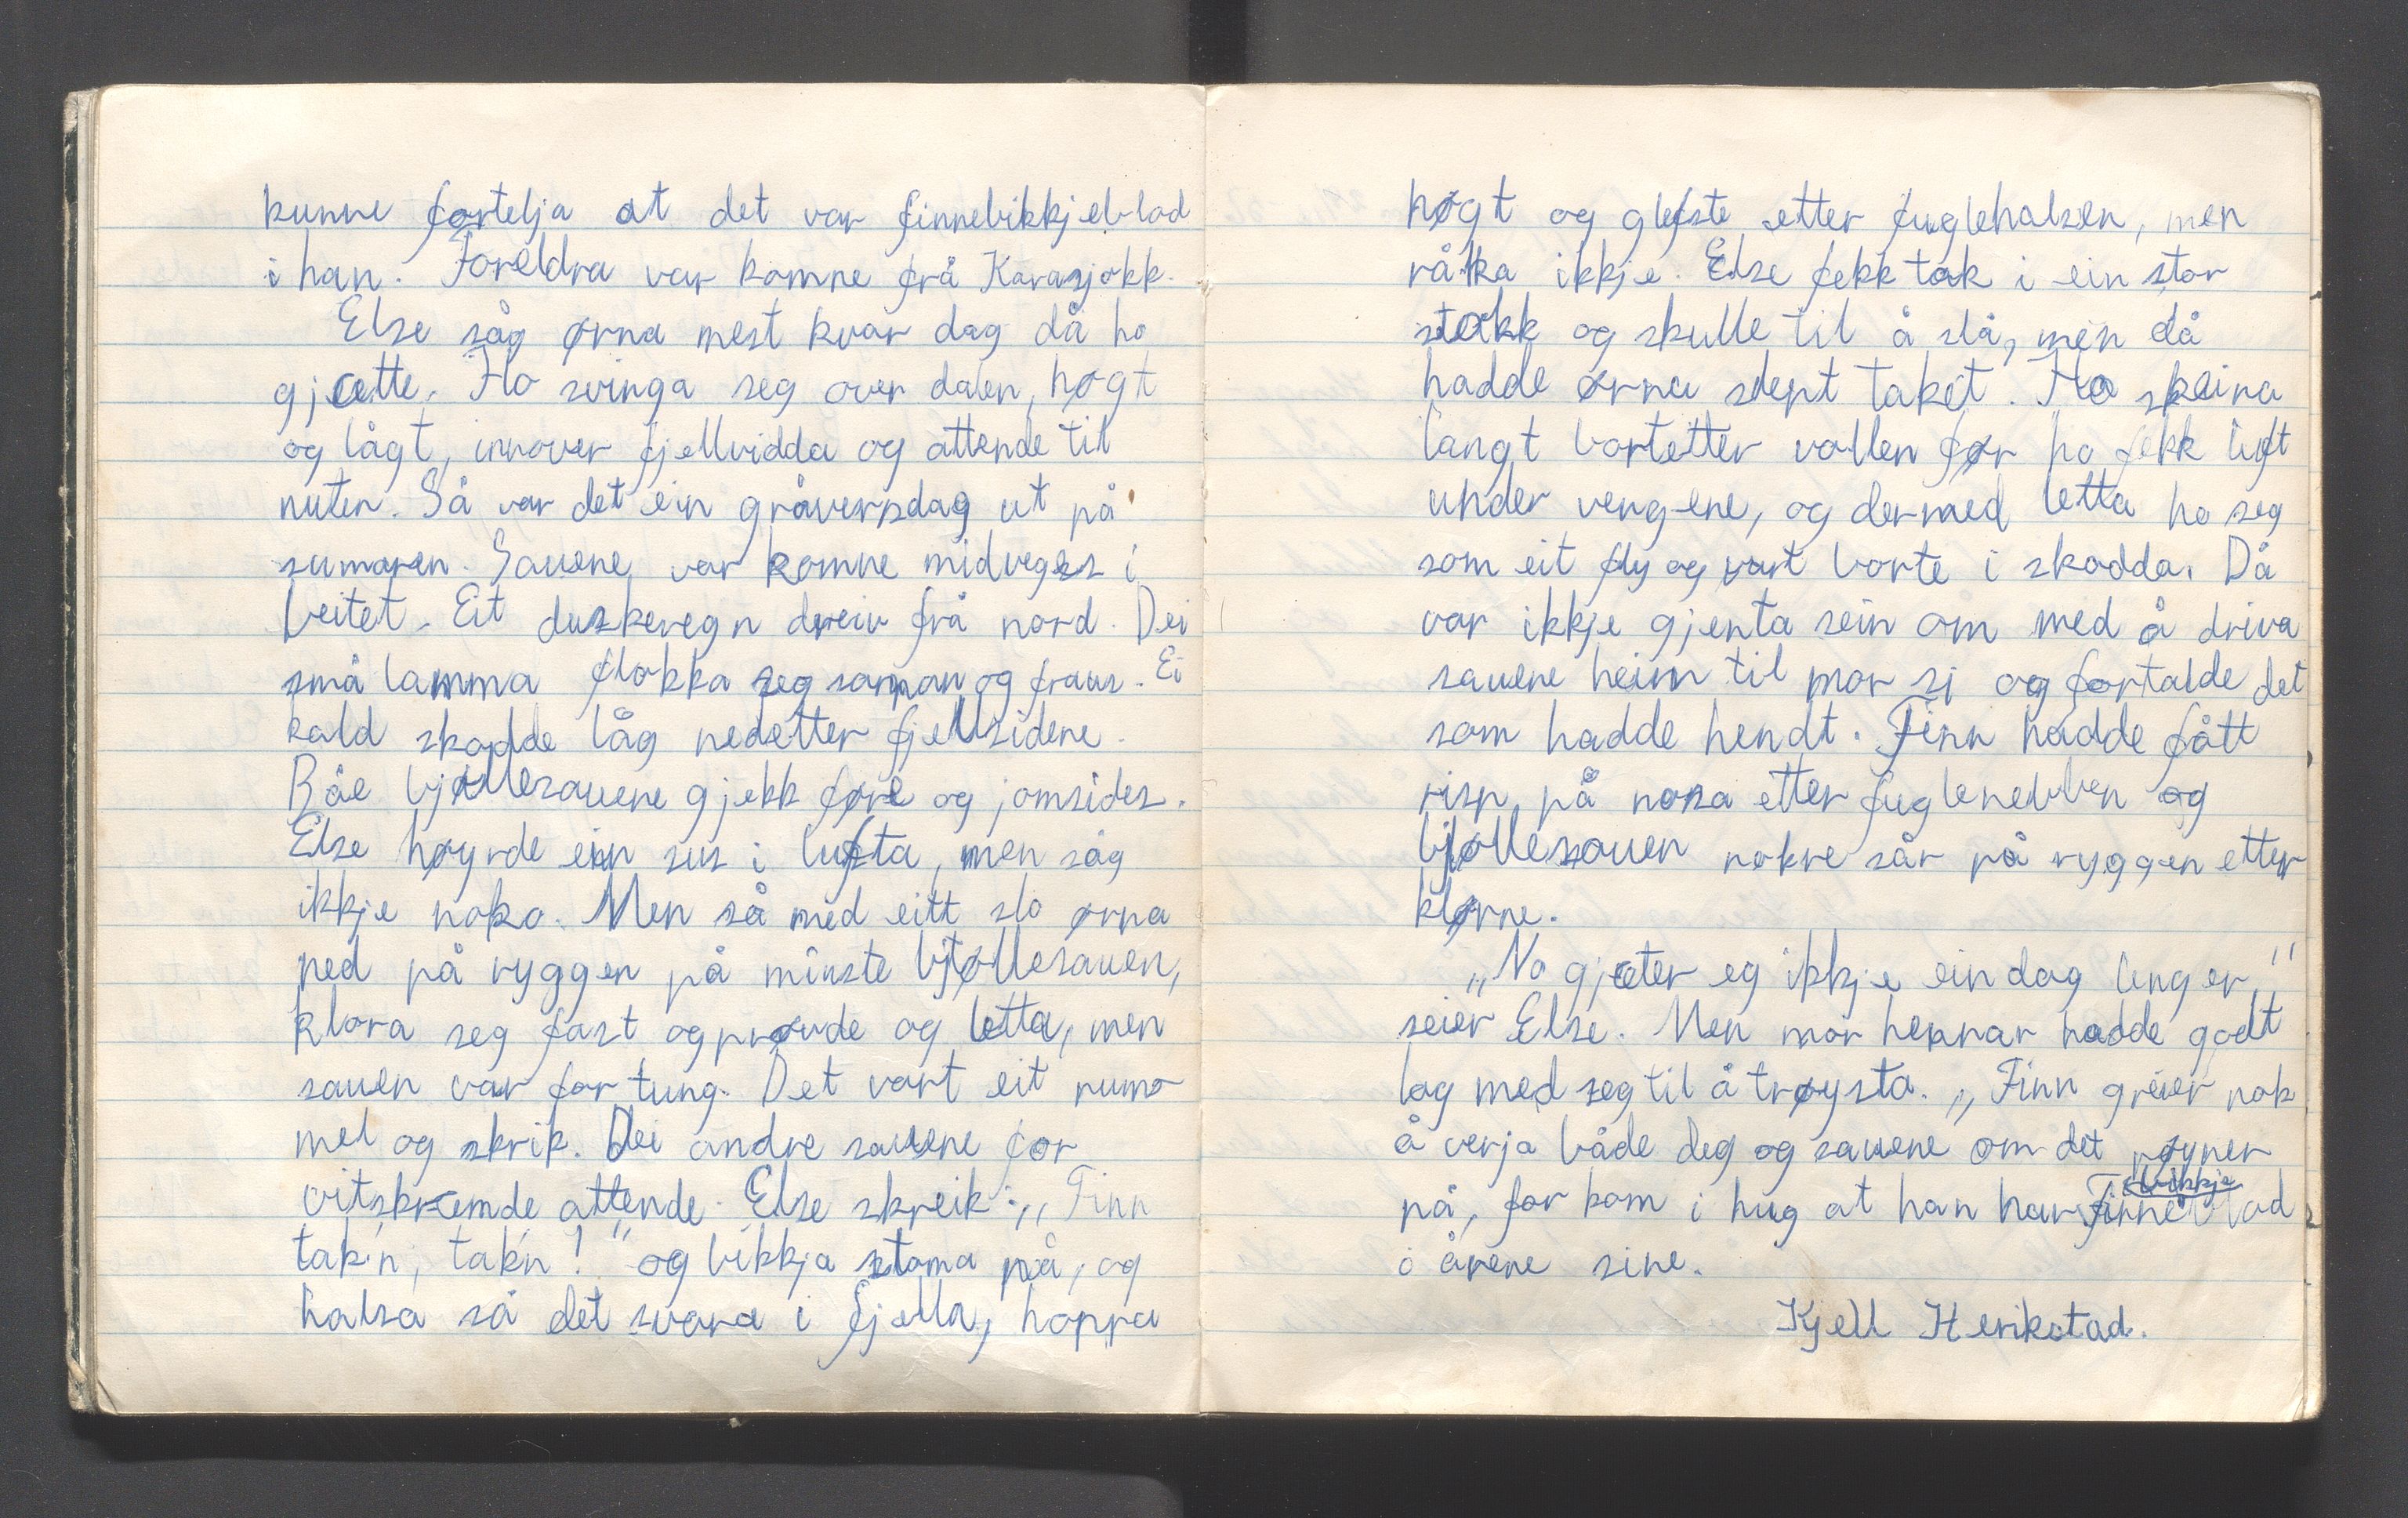 kunne fortelja at det var finnebikkjeblod
i han. Foreldra var komne frå Karasjokk.
Else såg ørna mest kvar dag då ho
gjætte. Ho svinga seg over dalen, høgt
og lågt, innover fjellvidda og attende til
nuten. Så var det ein gråversdag ut på
sumaren. Sauene var komne midveges i
beitet. Eit duskeregn dreiv frå nord. Dei
små lamma flokka seg saman og fraus. Ei
kald skodde låg nedetter fjellsidene.
Båe bjøllesauene gjekk føre og jomsides.
Else høyrde ein sus i lufta, men såg
ikkje noko. Men så med eitt slo ørna
ned på ryggen på minste bjøllesauen,
klora seg fast og prøvde og letta, men
sauen var for tung. Det vart eit rumo
mel og skrik. Dei andre sauene for
vitskræmde attende. Else skreik: „Finn
tak'n, tak'n!" og bikkja stoma på, og
halsa så det svara i fjella, hoppa
høgt og glefste etter fuglehalsen, men
råka ikkje. Else fekk tak i ein stor
stokk og skulle til å slå, men då
hadde ørna slept taket. Ho skeina
langt bortetter vollen før ho fekk luft
under vengene, og dermed letta ho seg
som eit fly og vart borte i skodda. Då
var ikkje gjenta sein om med å driva
sauene heim til mor si og fortalde det
som hadde hendt. Finn hadde fått
risp på nosa etter fuglenebben og
bjøllesauen nokre sår på ryggen etter
klørne.
„No gjæter eg ikkje ein dag lenger,"
seier Else. Men mor hennar hadde godt
lag med seg til å trøysta. „Finn greier nok
å verja både deg og sauene om det røyner
på, for kom i hug at han har finnebikkjeblod
i årene sine.
Kjell Herikstad.